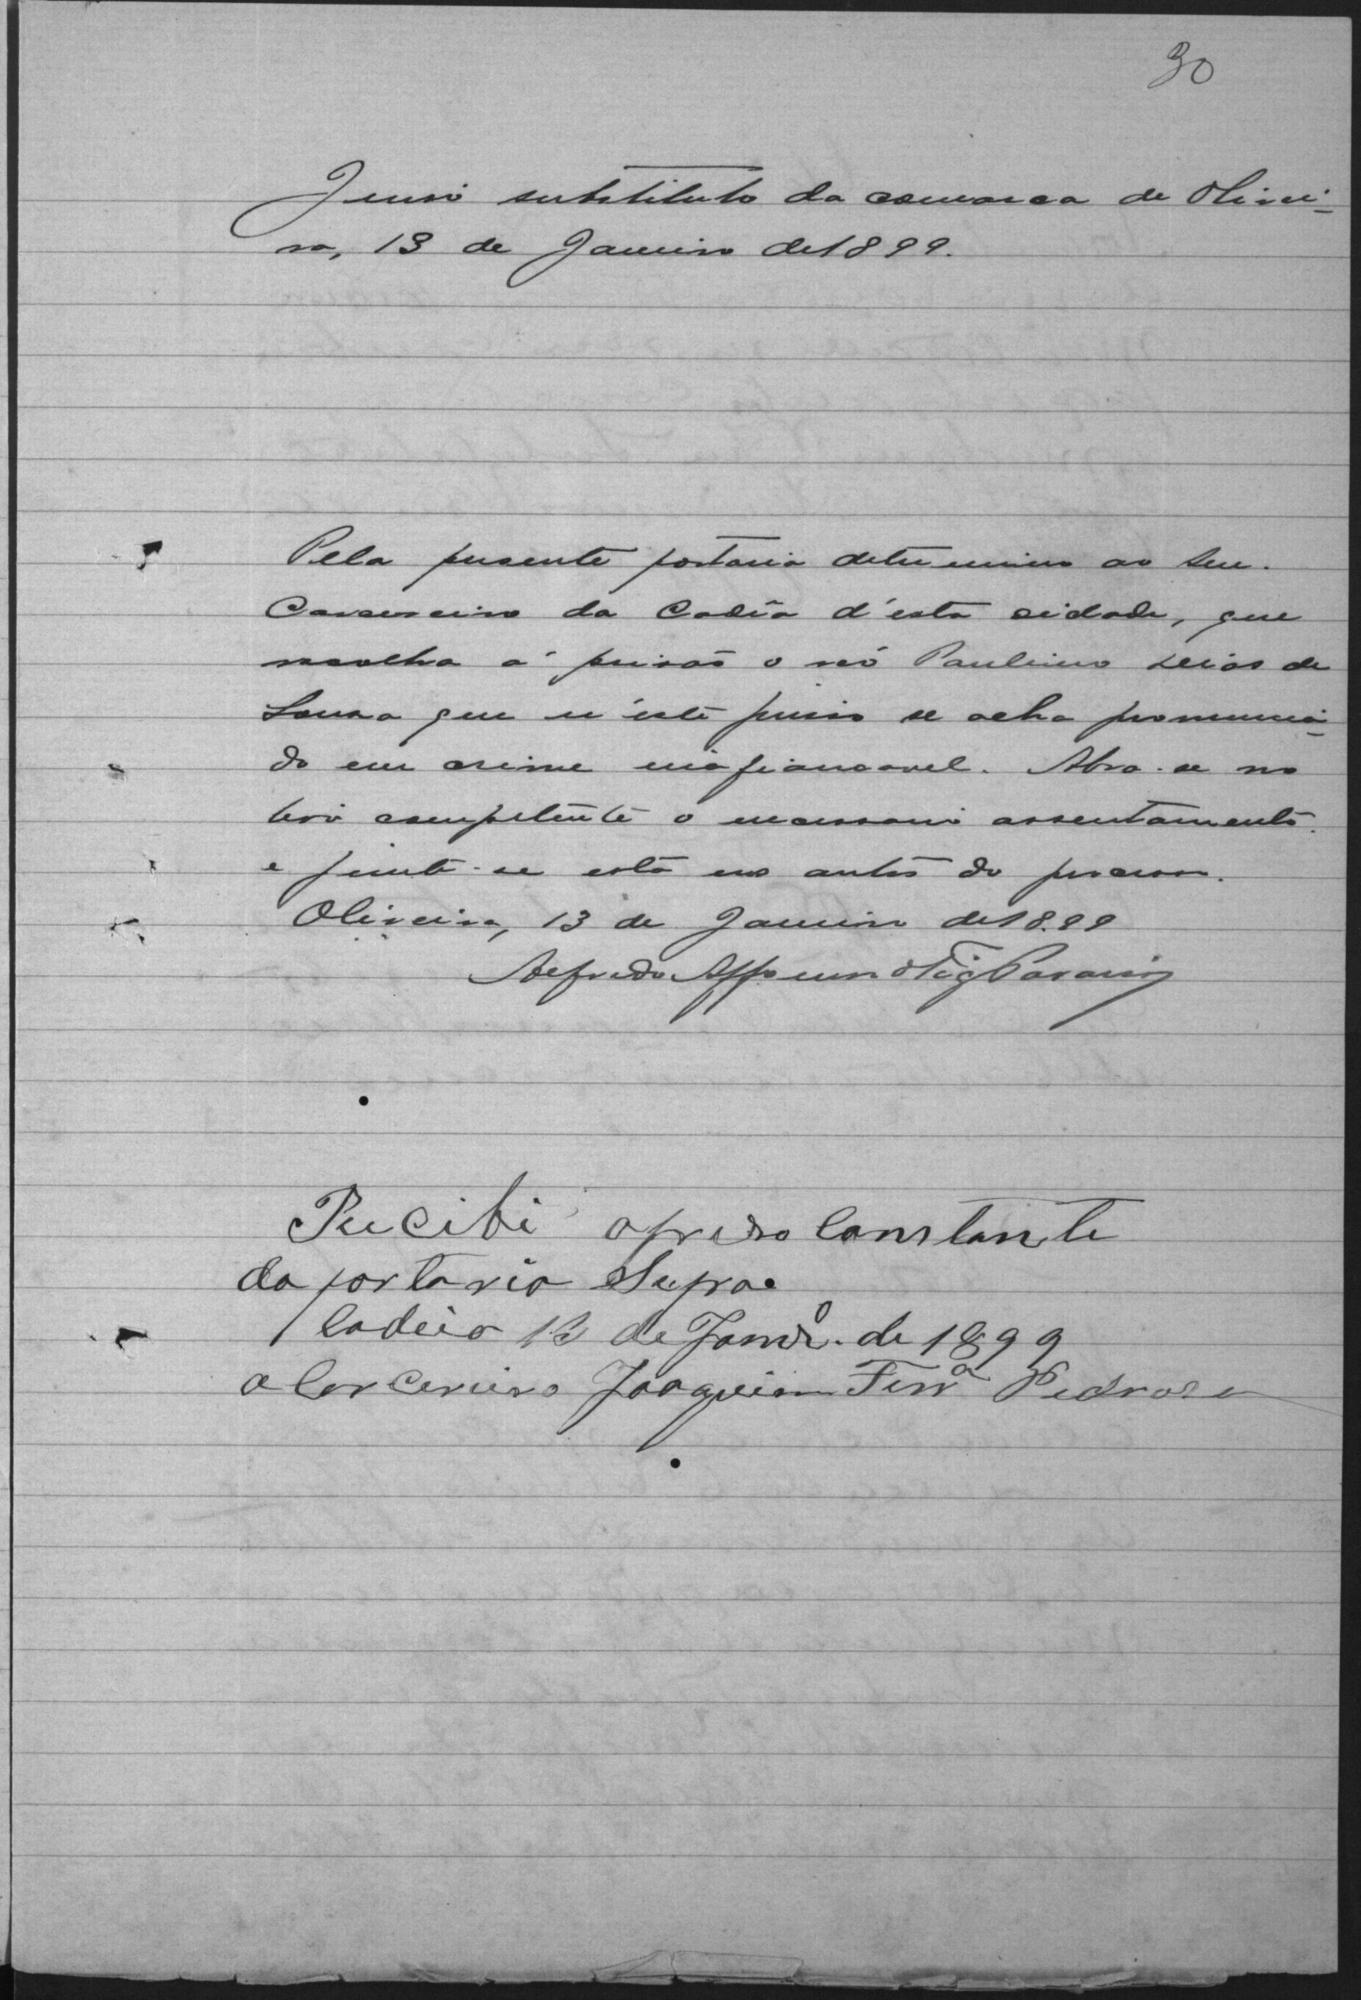 30
Juiso substituto da comarca de Olivei-
ra, 13 de Janeiro de 1899.
Pela presente portaria determino ao Snr.
Carcereiro da Cadêa d'esta cidade, que
recolha á prisão o réo Paulino de
Souza que n'este juiso se acha pronuncia-
do em crime inafiançavel. Abra-se no
livro competente o necessario assentamento
e junte-se esta nos autos do processo.
Oliveira, 13 de Janeiro de 1899
Alfredo Affonso
Recibi o prezo Constante
da portaria Supra
Cadeia 13 de Janrº. de 1899
o Carcereiro Joaquim Ferrª Pedrosa